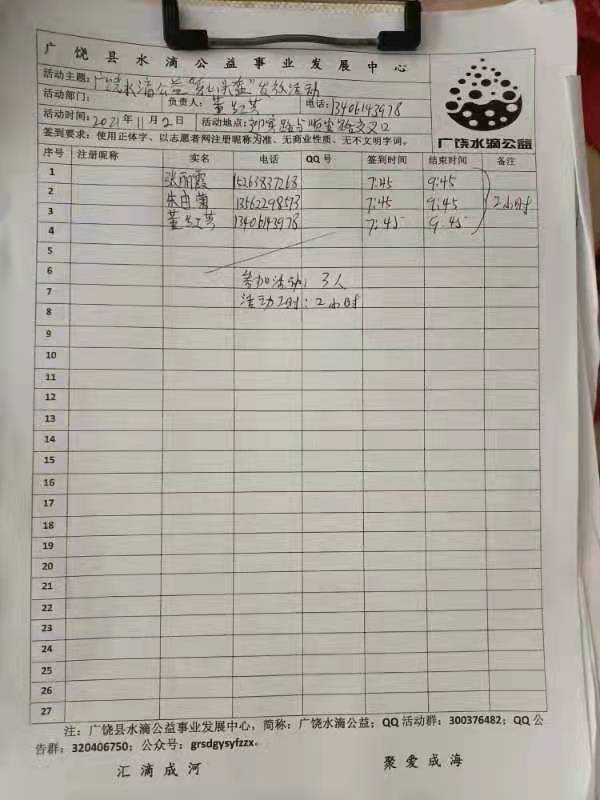 广饶县水滴公益事业发展中心
活动主题：广饶水滴公益 发放活动
活动部门： 负责人：董 电话：13406143978
活动时间：2021年11月2日 活动地点： 路与顺安路交叉口
签到要求：使用正体字、以志愿者网注册昵称为准、无商业性质、无不文明字词。
广饶水滴公益
序号 注册昵称 实名 电话 QQ号 签到时间 结束时间 备注
1 张丽霞 15263837268 7:45 9:45
2 朱 菊 13562298573 7:45 9:45 2小时
3 董 13406143978 7:45 9:45
4
5
6 参加活动：3人
7 活动工时：2小时
8
9
10
11
12
13
14
15
16
17
18
19
20
21
22
23
24
25
26
27
注：广饶县水滴公益事业发展中心，简称：广饶水滴公益；QQ活动群：300376482；QQ公
告群：320406750；公众号：grsdgysyfzzx。
汇滴成河 聚爱成海